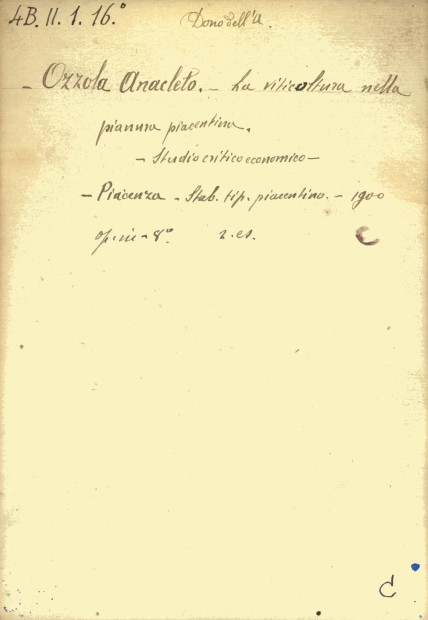 4B. II. 1. 16.° Dono dell'A.
- Ozzola Anacleto. - La viticoltura nella
pianura piacentina.
- Studio critico economico -
- Piacenza - Stab. tip. piacentino. - 1900
op. in - 8°. 2. es.
C